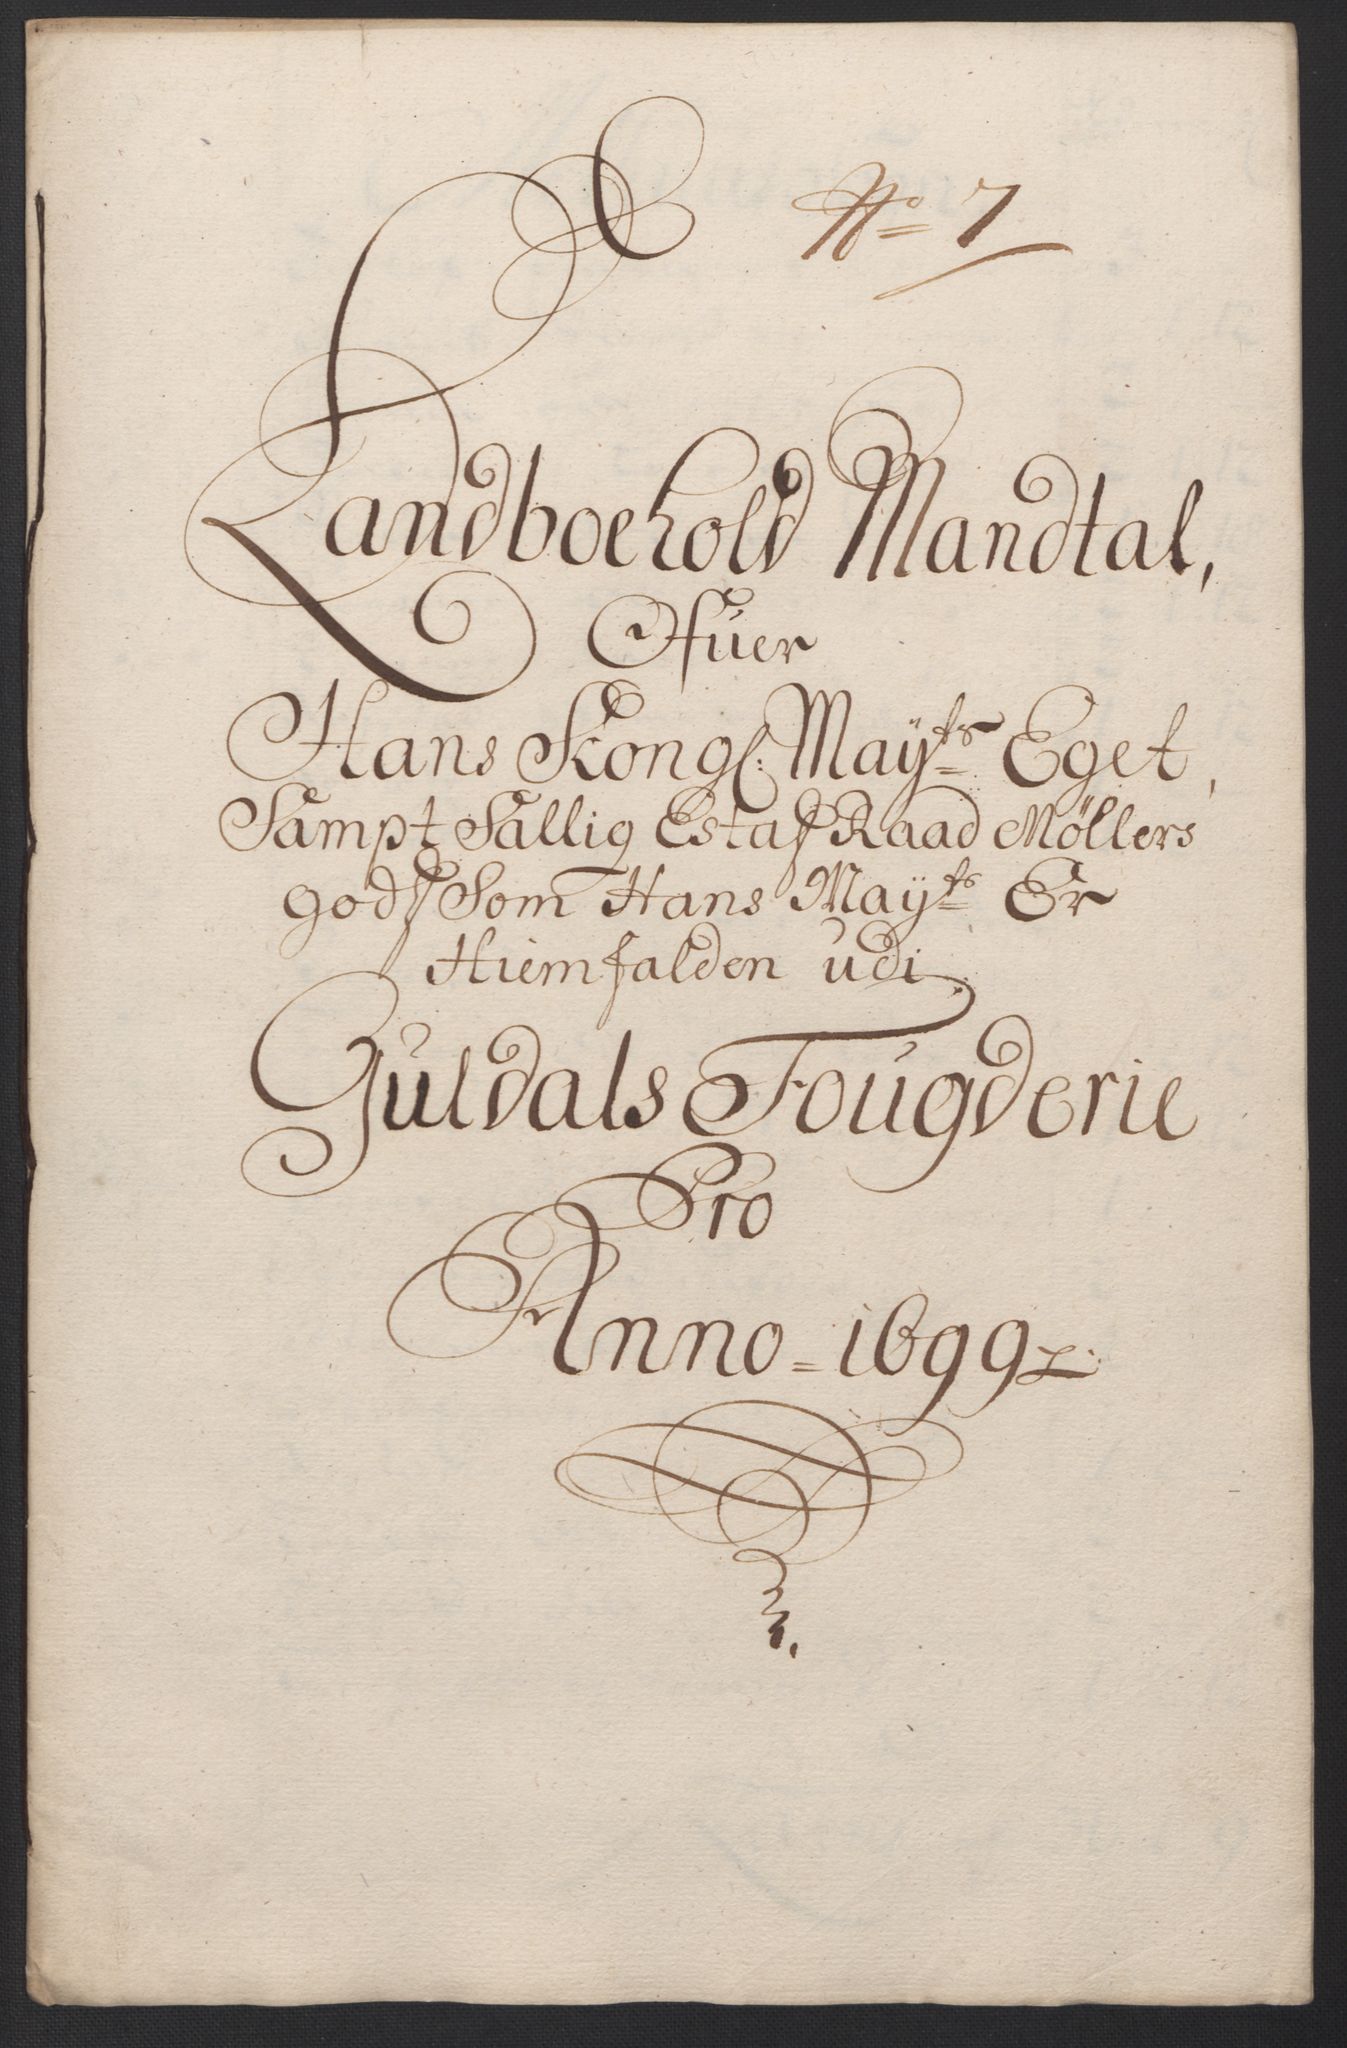 No 7
Landboehold Mandtal,
Ofuer
Hans Kongl: Mayts Eget,
Sampt Sallig Estatz Raad Möllers
godz Som Hans Mayts Er
Hiemfalden udi
Guldals Fougderie
Pro
Anno = 1699